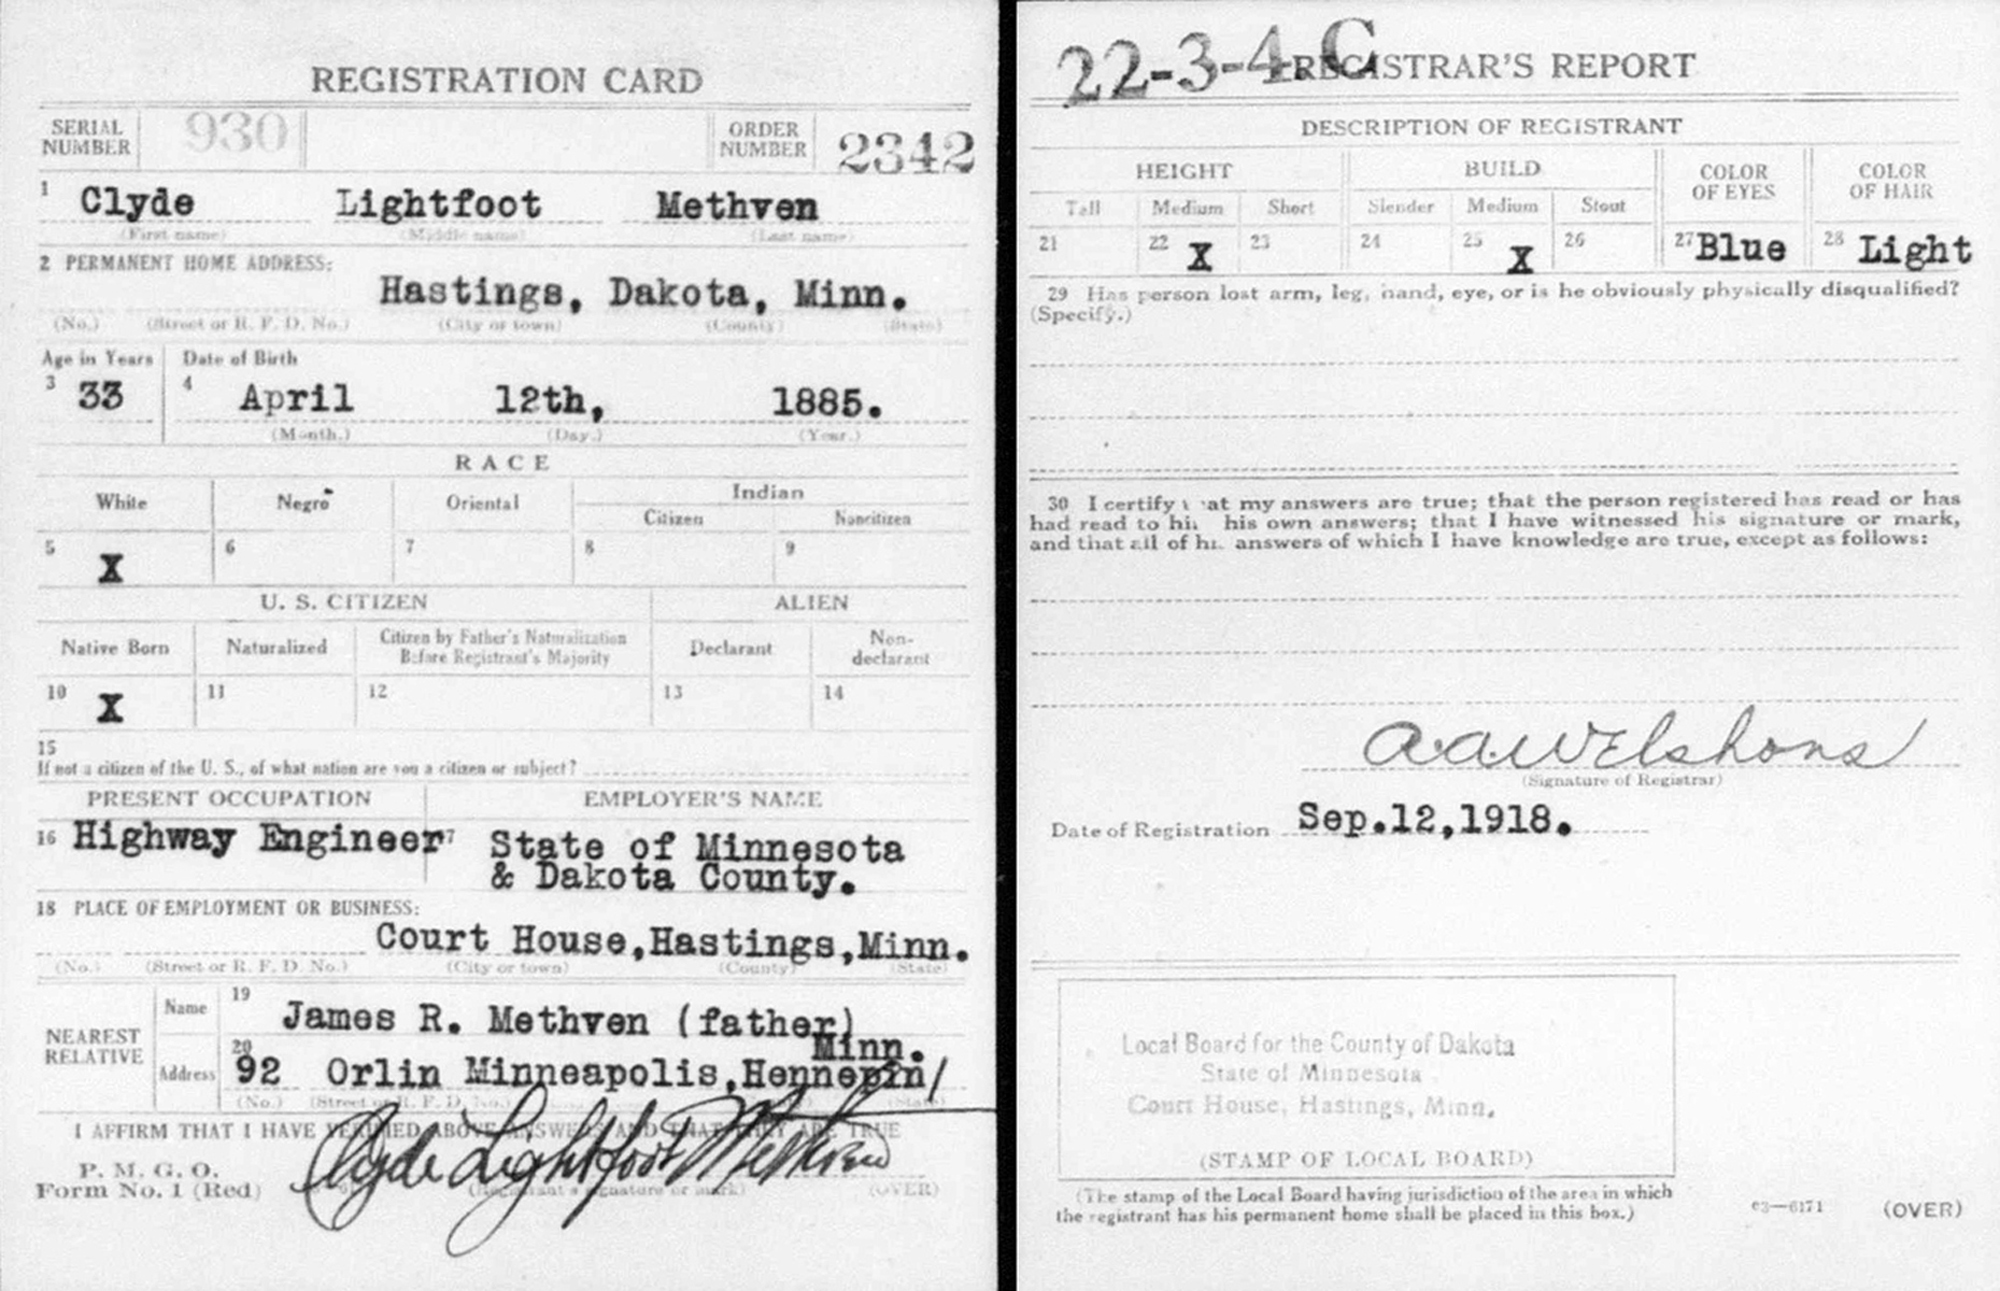 REGISTRATION CARD
SERIAL NUMBER 930 ORDER NUMBER 2342
1 Clyde Lightfoot Methven
(First name) (Middle name) (Last name)
2 PERMANENT HOME ADDRESS:
Hastings, Dakota, Minn.
(No.) (Street or R. F. D. No.) (City or town) (County) (State)
Age in Years Date of Birth
3 33 4 April 12th, 1885.
(Month.) (Day.) (Year.)
RACE
White Negro Oriental Indian
Citizen Noncitizen
5 X 6 7 8 9
U. S. CITIZEN ALIEN
Native Born Naturalized Citizen by Father's Naturalization Before Registrant's Majority Declarant Non-declarant
10 X 11 12 13 14
15
If not a citizen of the U. S., of what nation are you a citizen or subject?
PRESENT OCCUPATION EMPLOYER'S NAME
16 Highway Engineer 17 State of Minnesota
& Dakota County.
18 PLACE OF EMPLOYMENT OR BUSINESS:
Court House,Hastings,Minn.
(No.) (Street or R. F. D. No.) (City or town) (County) (State)
NEAREST RELATIVE Name 19 James R. Methven (father)
Minn.
Address 20 92 Orlin Minneapolis,Hennepin/
(No.) (Street or R. F. D. No.) (State)
I AFFIRM THAT I HAVE VERIFIED ABOVE ANSWERS AND THAT THEY ARE TRUE
P. M. G. O.
Form No. 1 (Red) Clyde Lightfoot Methven
(Registrant's signature or mark) (OVER)
22-3-4 C
REGISTRAR'S REPORT
DESCRIPTION OF REGISTRANT
HEIGHT BUILD COLOR OF EYES COLOR OF HAIR
Tall Medium Short Slender Medium Stout
21 22 X 23 24 25 X 26 27 Blue 28 Light
29 Has person lost arm, leg, hand, eye, or is he obviously physically disqualified?
(Specify.)
30 I certify that my answers are true; that the person registered has read or has
had read to him his own answers; that I have witnessed his signature or mark,
and that all of his answers of which I have knowledge are true, except as follows:
A.A.Welshons
(Signature of Registrar)
Date of Registration Sep.12,1918.
Local Board for the County of Dakota
State of Minnesota
Court House, Hastings, Minn.
(STAMP OF LOCAL BOARD)
(The stamp of the Local Board having jurisdiction of the area in which
the registrant has his permanent home shall be placed in this box.)
03—6171 (OVER)